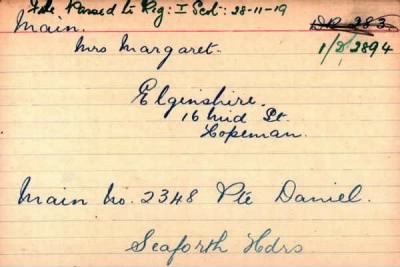 File Passed to Reg: I Scot: 28-11-19
Main. DR 283
Mrs Margaret. 1/D/2894
Elginshire.
16 Mid St.
Hopeman.
Main No. 2348 Pte Daniel.
Seaforth Hdrs